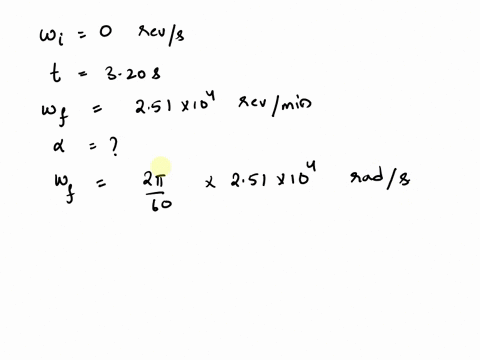 ωi = 0 rev/s
t = 3.20 s
ωf = 2.51 × 10⁴ rev/min
α = ?
ωf = 2π/60 × 2.51 × 10⁴ rad/s